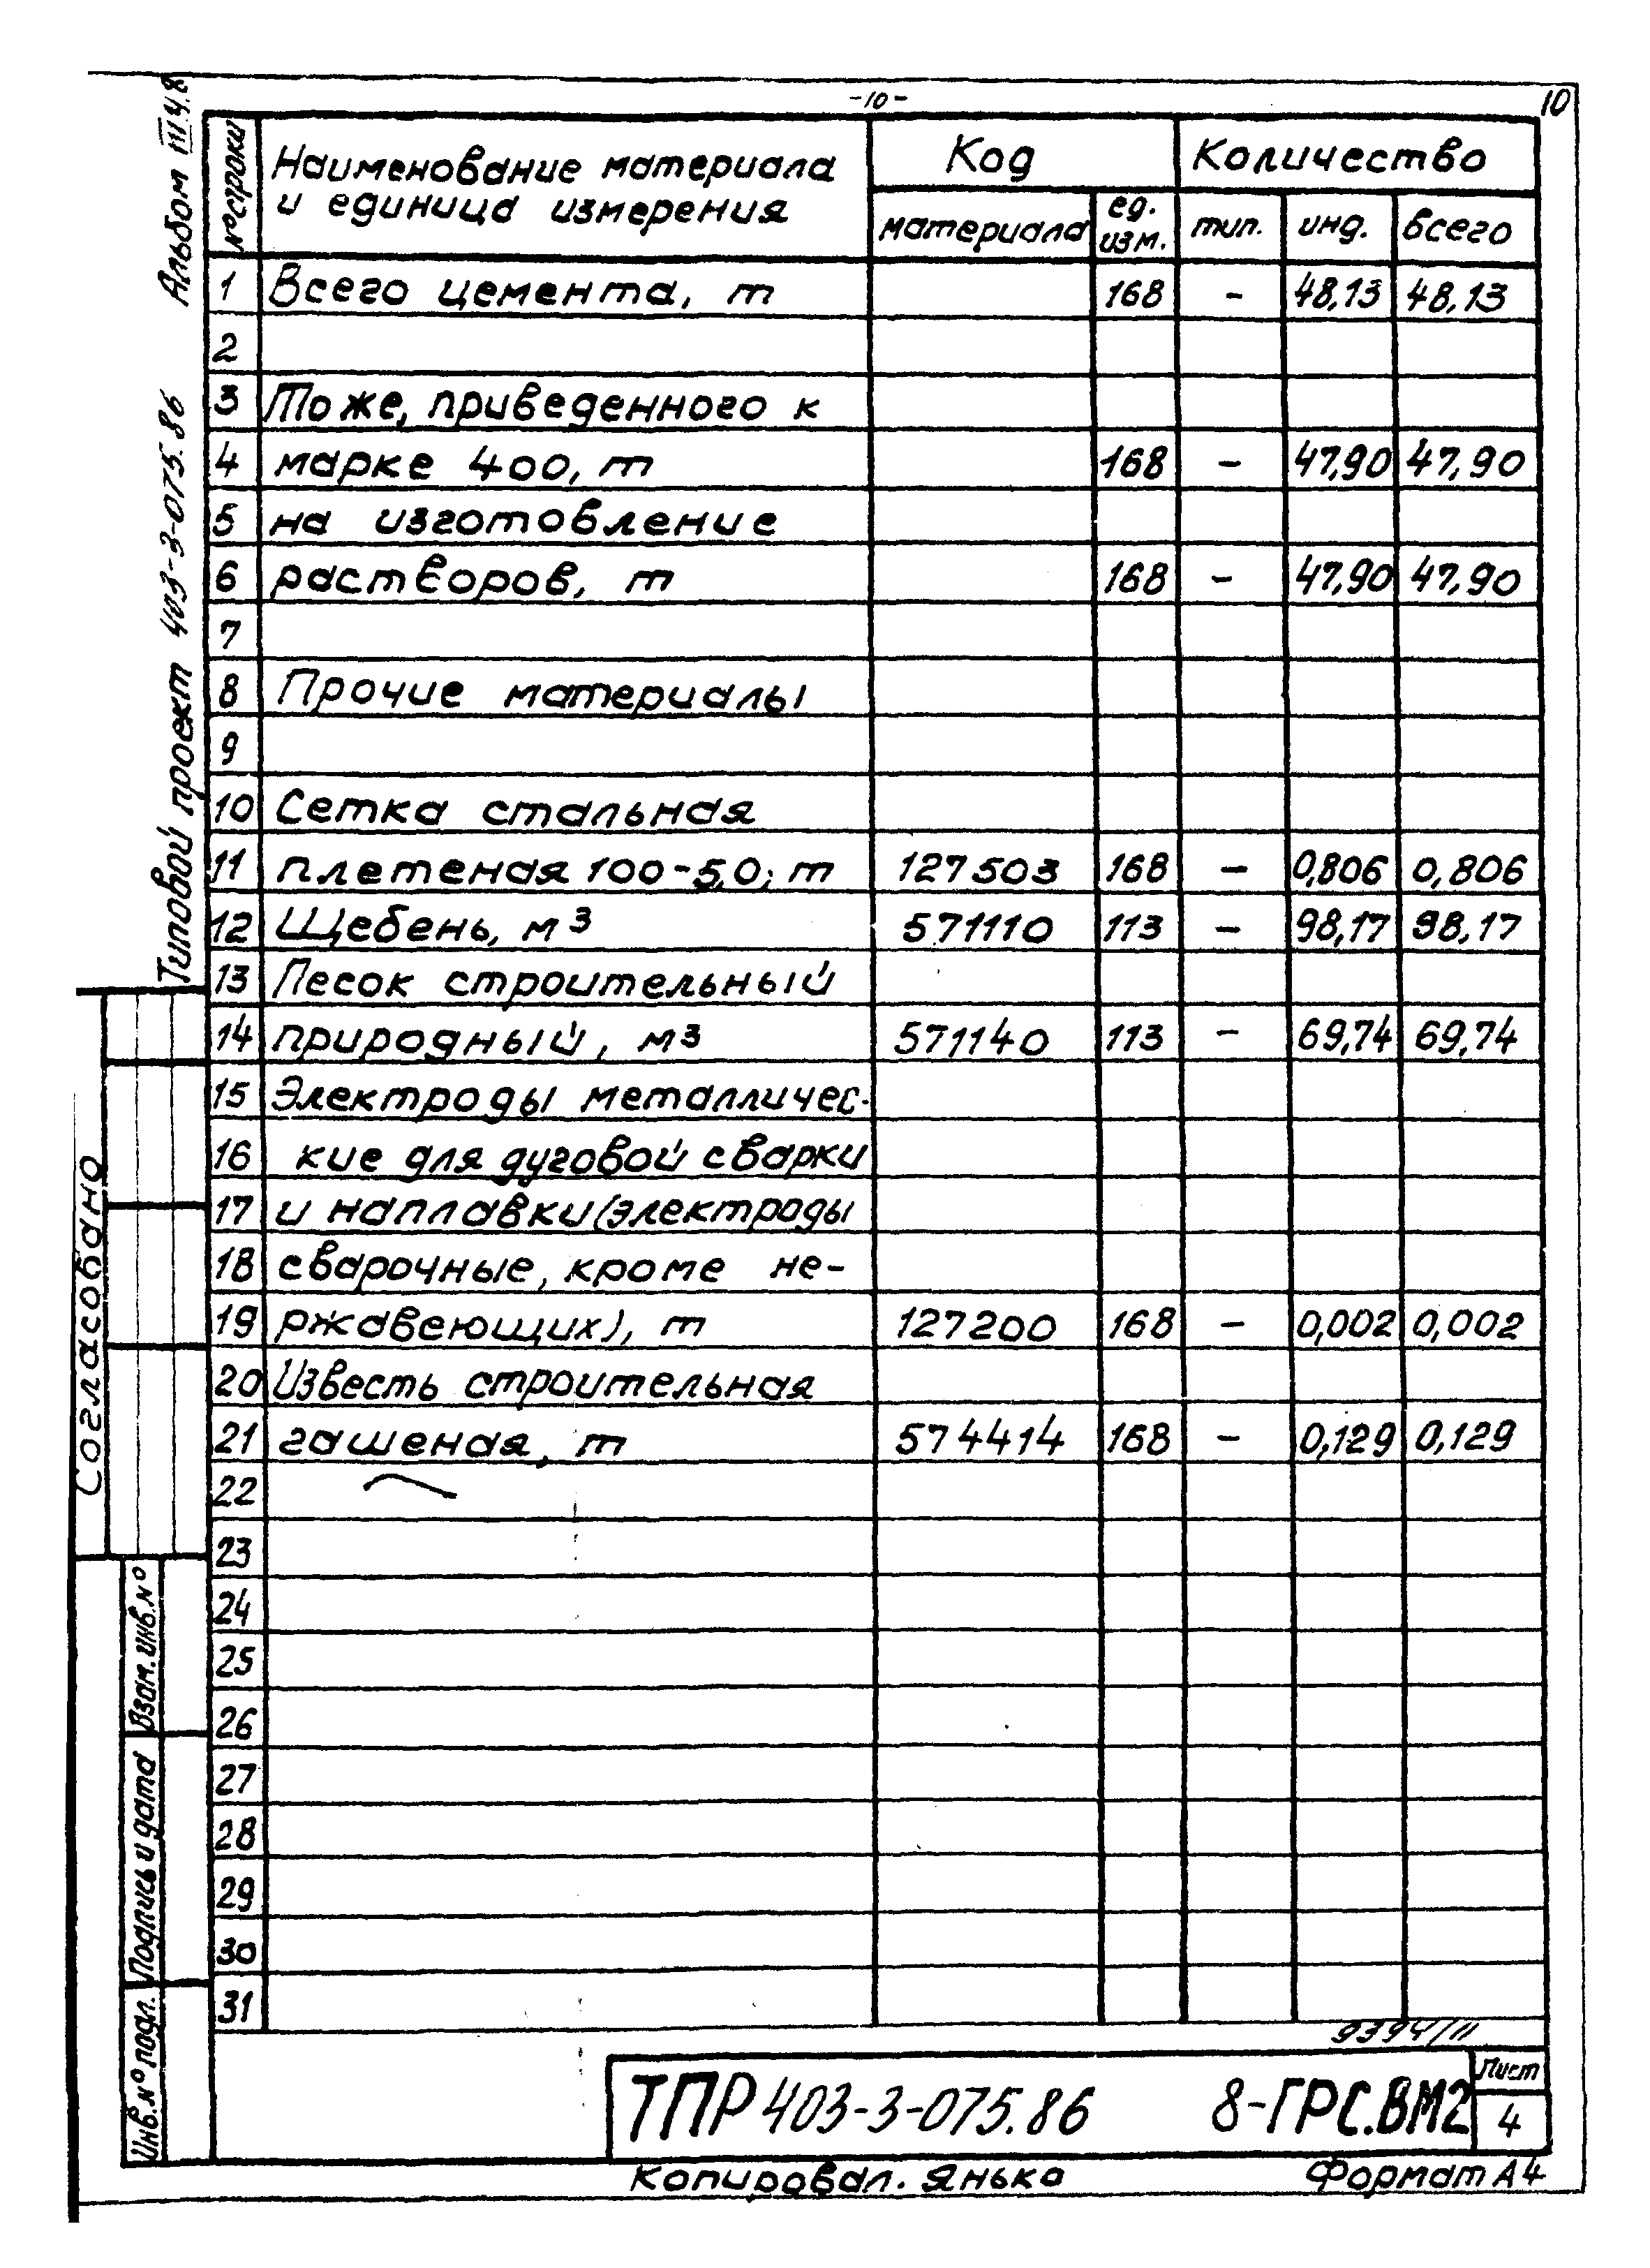 -10-
10
Альбом III ч.8
Типовой проект 403-3-075.86
№ строки
Наименование материала
и единица измерения
Код
Количество
материала
ед.
изм.
тип.
инд.
всего
1 Всего цемента, т 168 - 48,13 48,13
2
3 То же, приведенного к
4 марке 400, т 168 - 47,90 47,90
5 на изготовление
6 растворов, т 168 - 47,90 47,90
7
8 Прочие материалы
9
10 Сетка стальная
11 плетеная 100-5,0; т 127503 168 - 0,806 0,806
12 Щебень, м³ 571110 113 - 98,17 98,17
13 Песок строительный
14 природный, м³ 571140 113 - 69,74 69,74
15 Электроды металличес-
16 кие для дуговой сварки
17 и наплавки (электроды
18 сварочные, кроме не-
19 ржавеющих), т 127200 168 - 0,002 0,002
20 Известь строительная
21 гашеная, т 574414 168 - 0,129 0,129
22
23
24
25
26
27
28
29
30
31
Согласовано
Взам. инв. №
Подпись и дата
Инв. № подл.
9394/11
ТПР 403-3-075.86 8-ГРС.ВМ2
Лист
4
Копировал. Янько
Формат А4